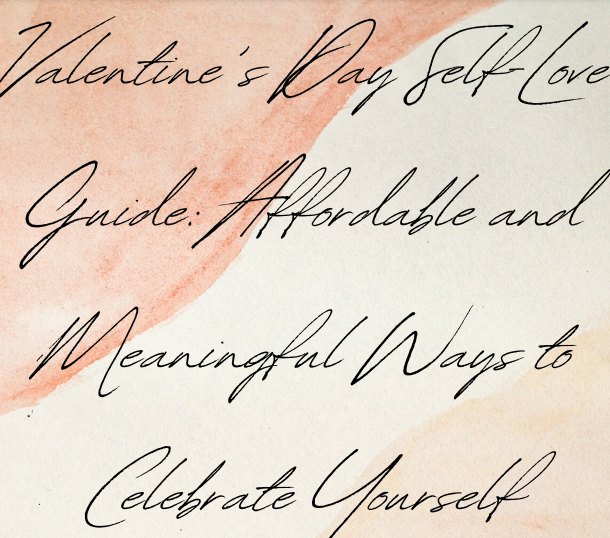 Valentine's Day Self-Love
Guide: Affordable and
Meaningful Ways to
Celebrate Yourself